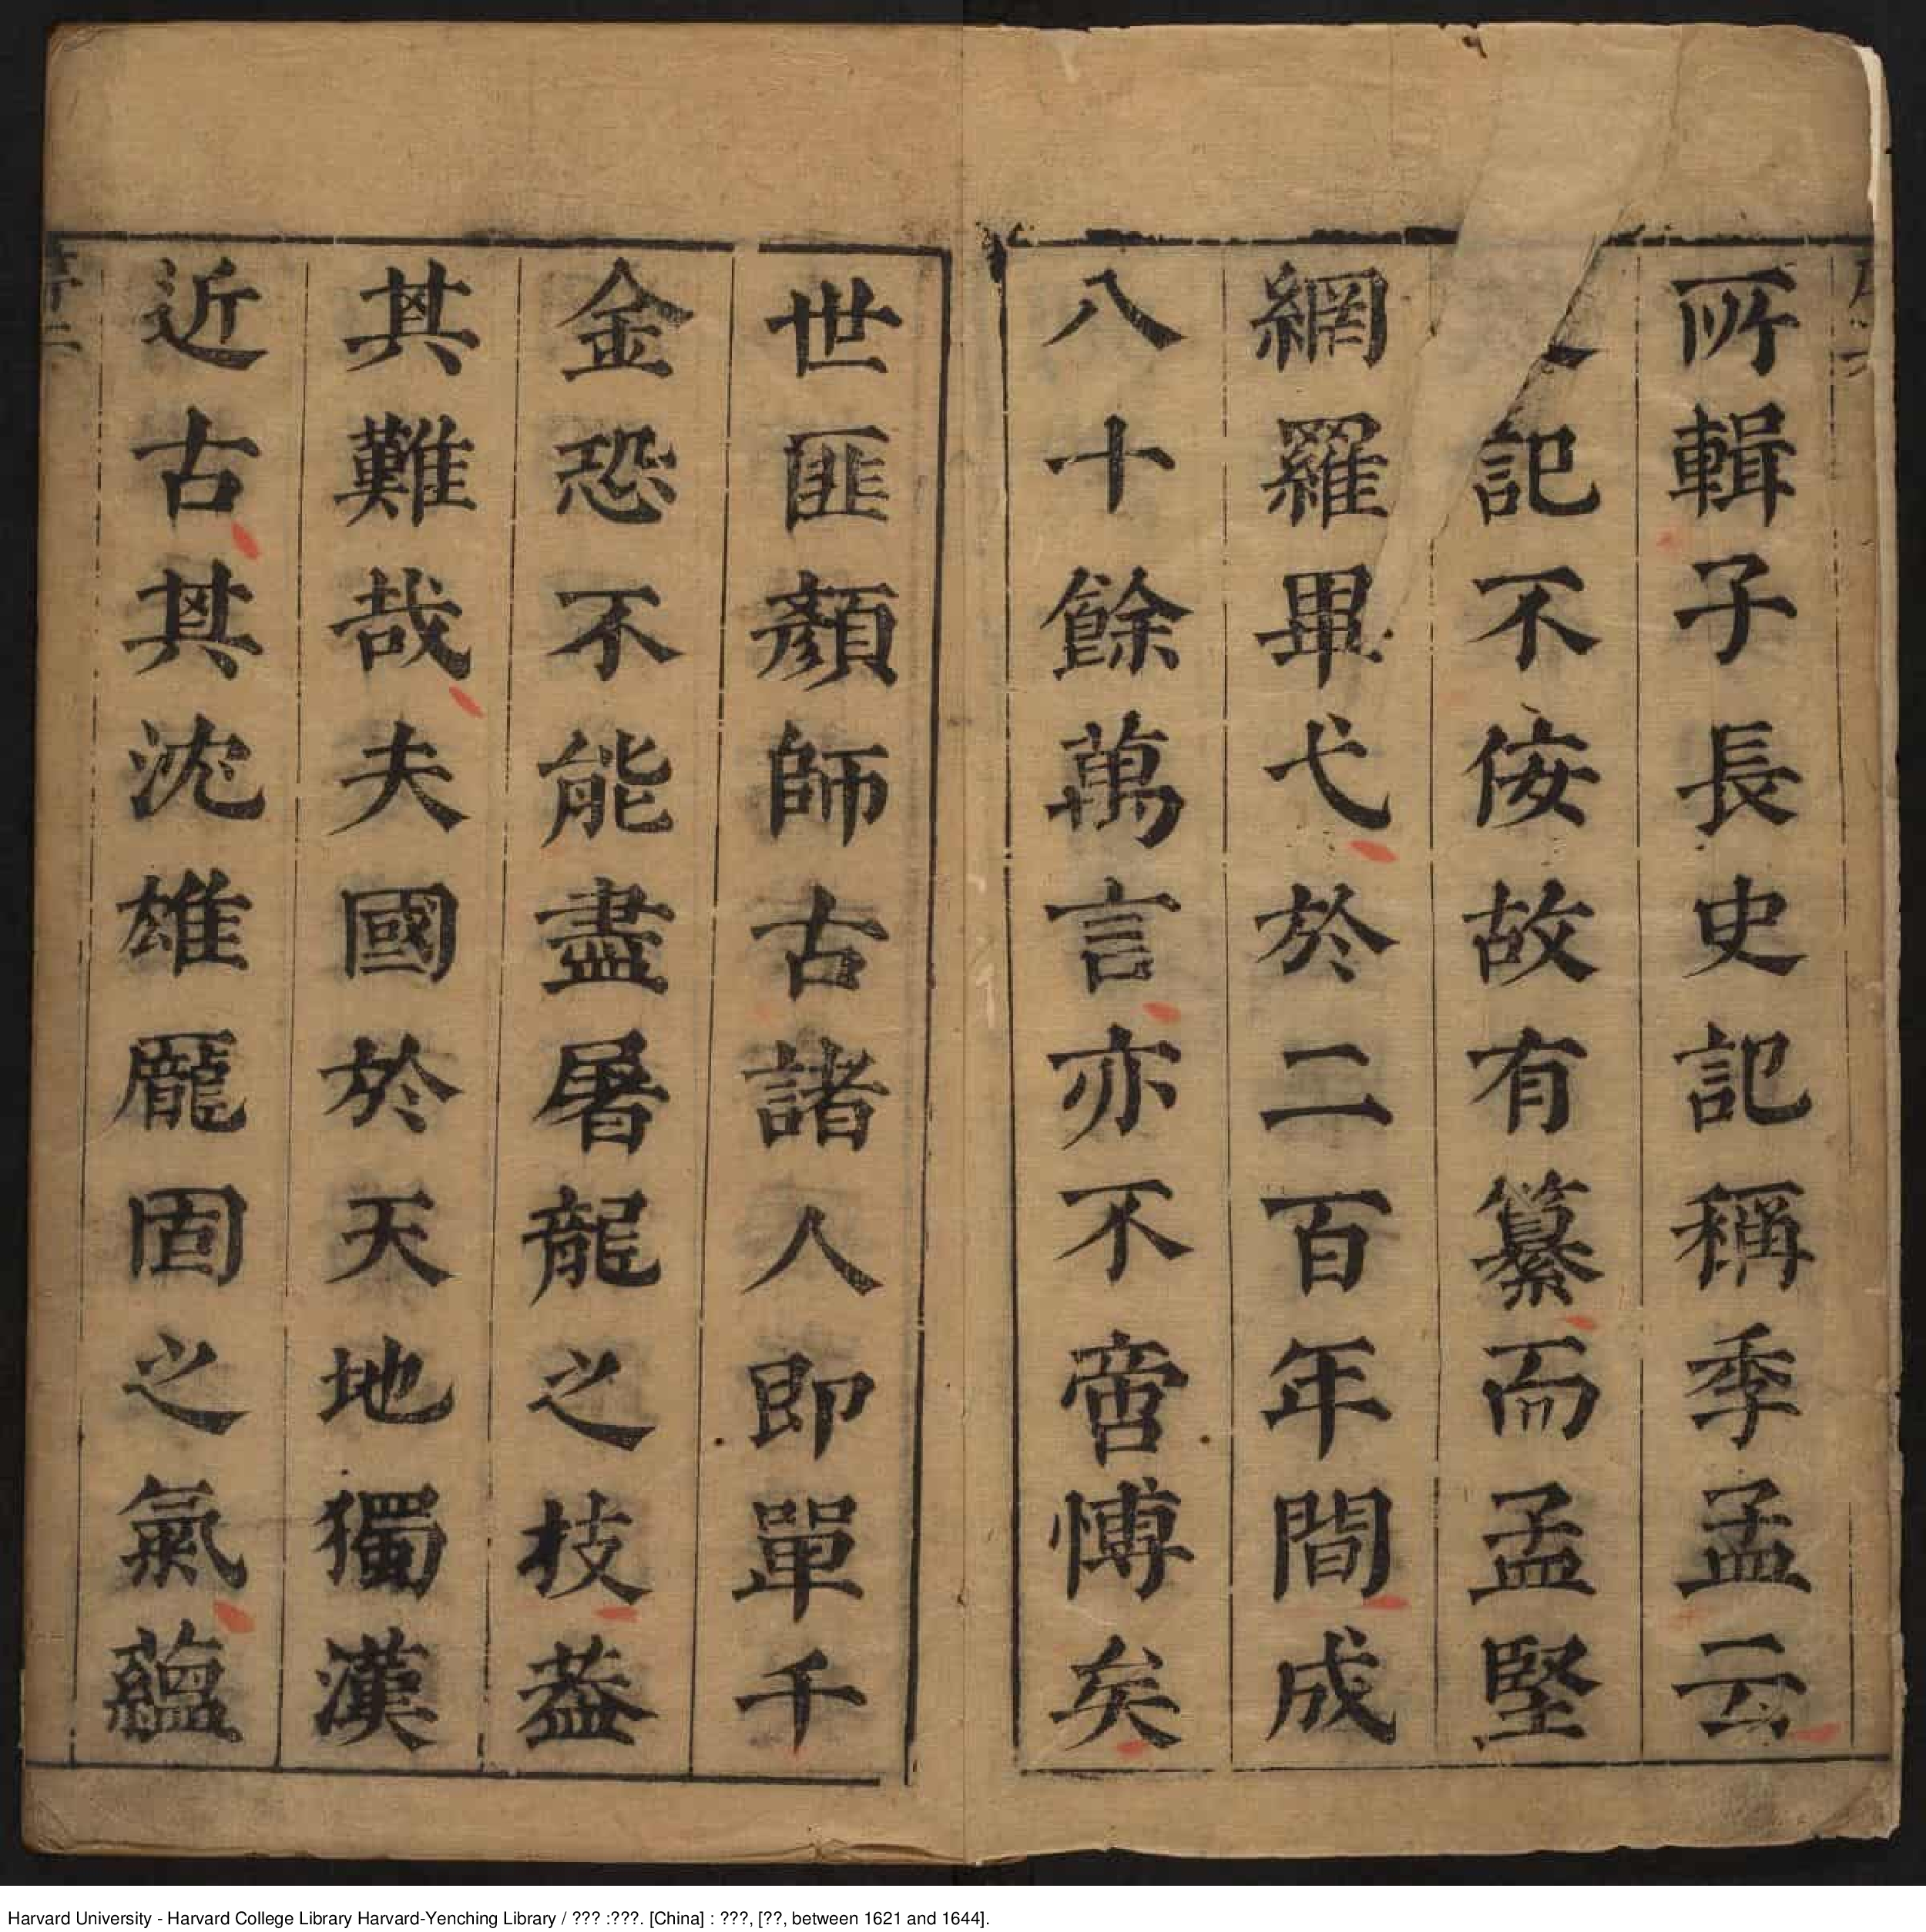 所輯子長史記稱季孟云
記不佞故有纂而孟堅
網羅畢弋於二百年間成
八十餘萬言亦不啻博矣
世匪顏師古諸人即單千
金恐不能盡屠龍之技葢
其難哉夫國於天地獨漢
近古其沈雄龐固之氣蘊
Harvard University - Harvard College Library Harvard-Yenching Library / ??? :???. [China] : ???, [??, between 1621 and 1644].